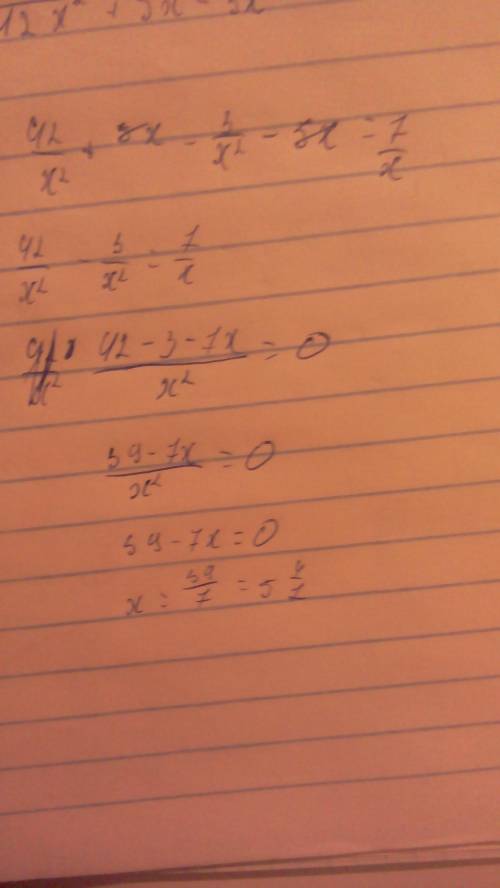 12x² + 3x - 3x
42/x² + 3x - 3/x² - 3x = 7/x
42/x² - 3/x² = 7/x
(42 - 3 - 7x)/x² = 0
(39 - 7x)/x² = 0
39 - 7x = 0
x = 39/7 = 5 4/7